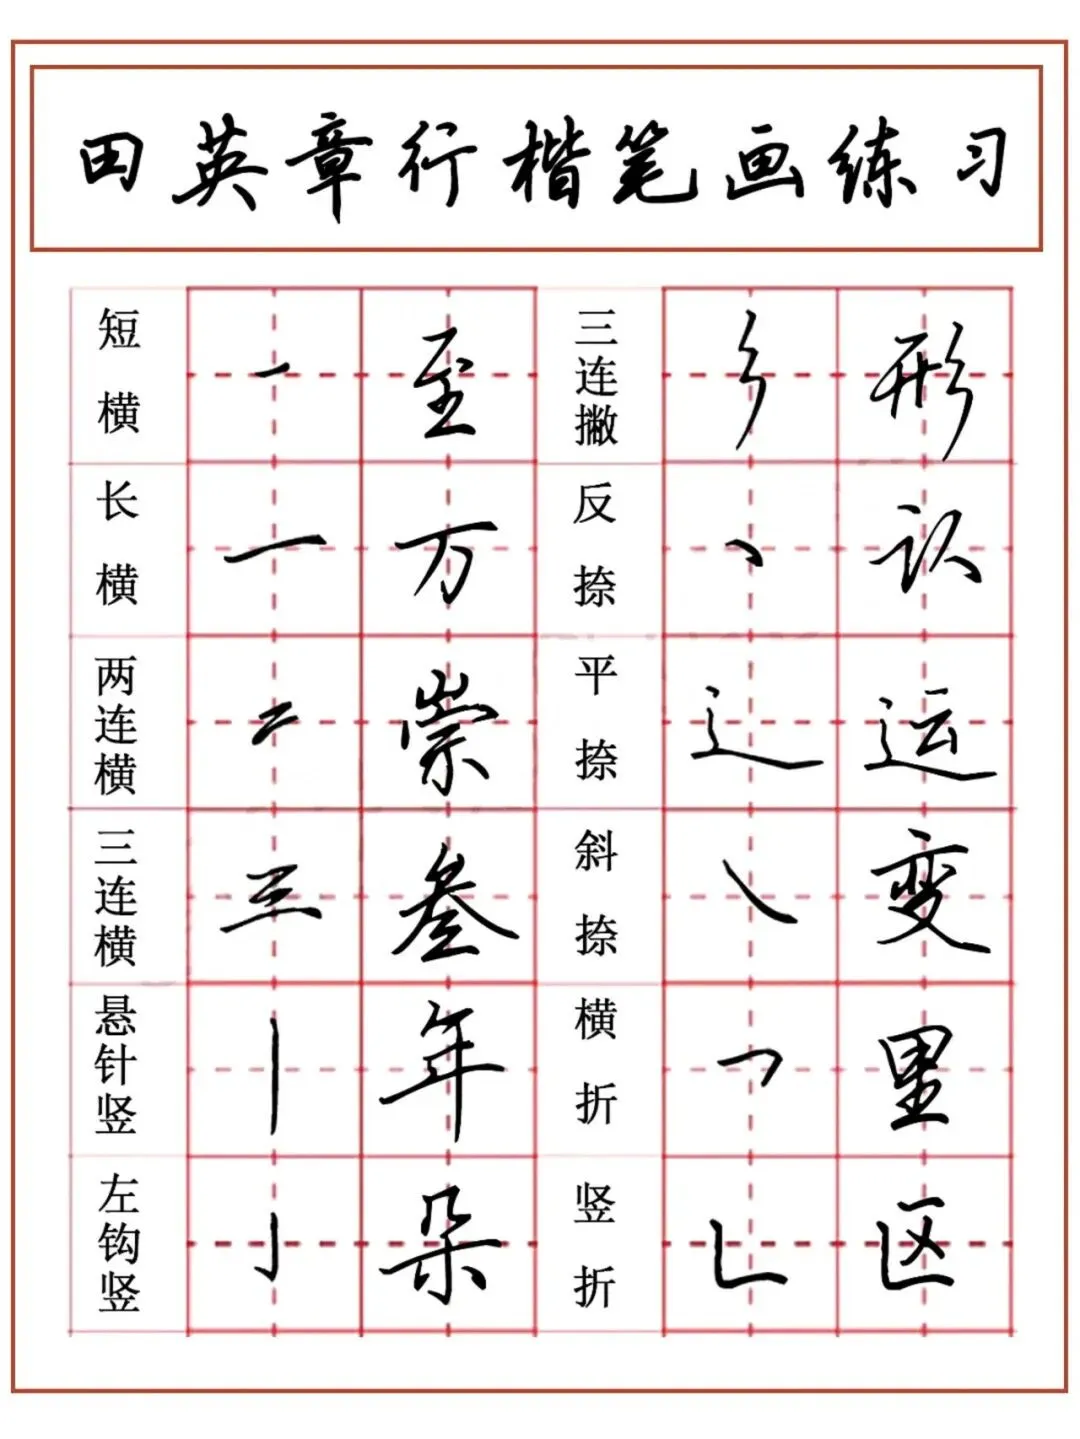 田英章行楷笔画练习
短横 一 至 三连撇 彡 形
长横 一 万 反捺 丶 认
两连横 二 崇 平捺 辶 运
三连横 三 叁 斜捺 ㇏ 变
悬针竖 丨 年 横折 ㇕ 里
左钩竖 亅 朵 竖折 ㇄ 区